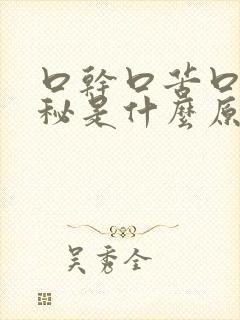 口幹口苦口
秘是什麼原
吴秀全